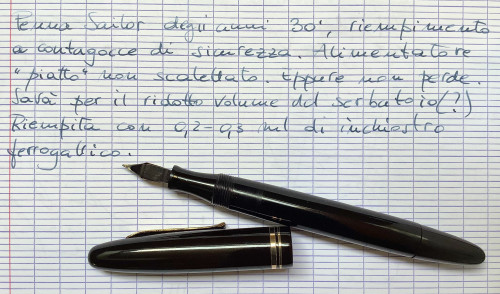 Penna Sailor degli anni 30', riempimento
a contagocce di sicurezza. Alimentatore
"piatto" non scalettato. Eppure non perde.
Sarà per il ridotto volume del serbatoio(?)
Riempita con 0,2-0,3 ml di inchiostro
ferrogallico.